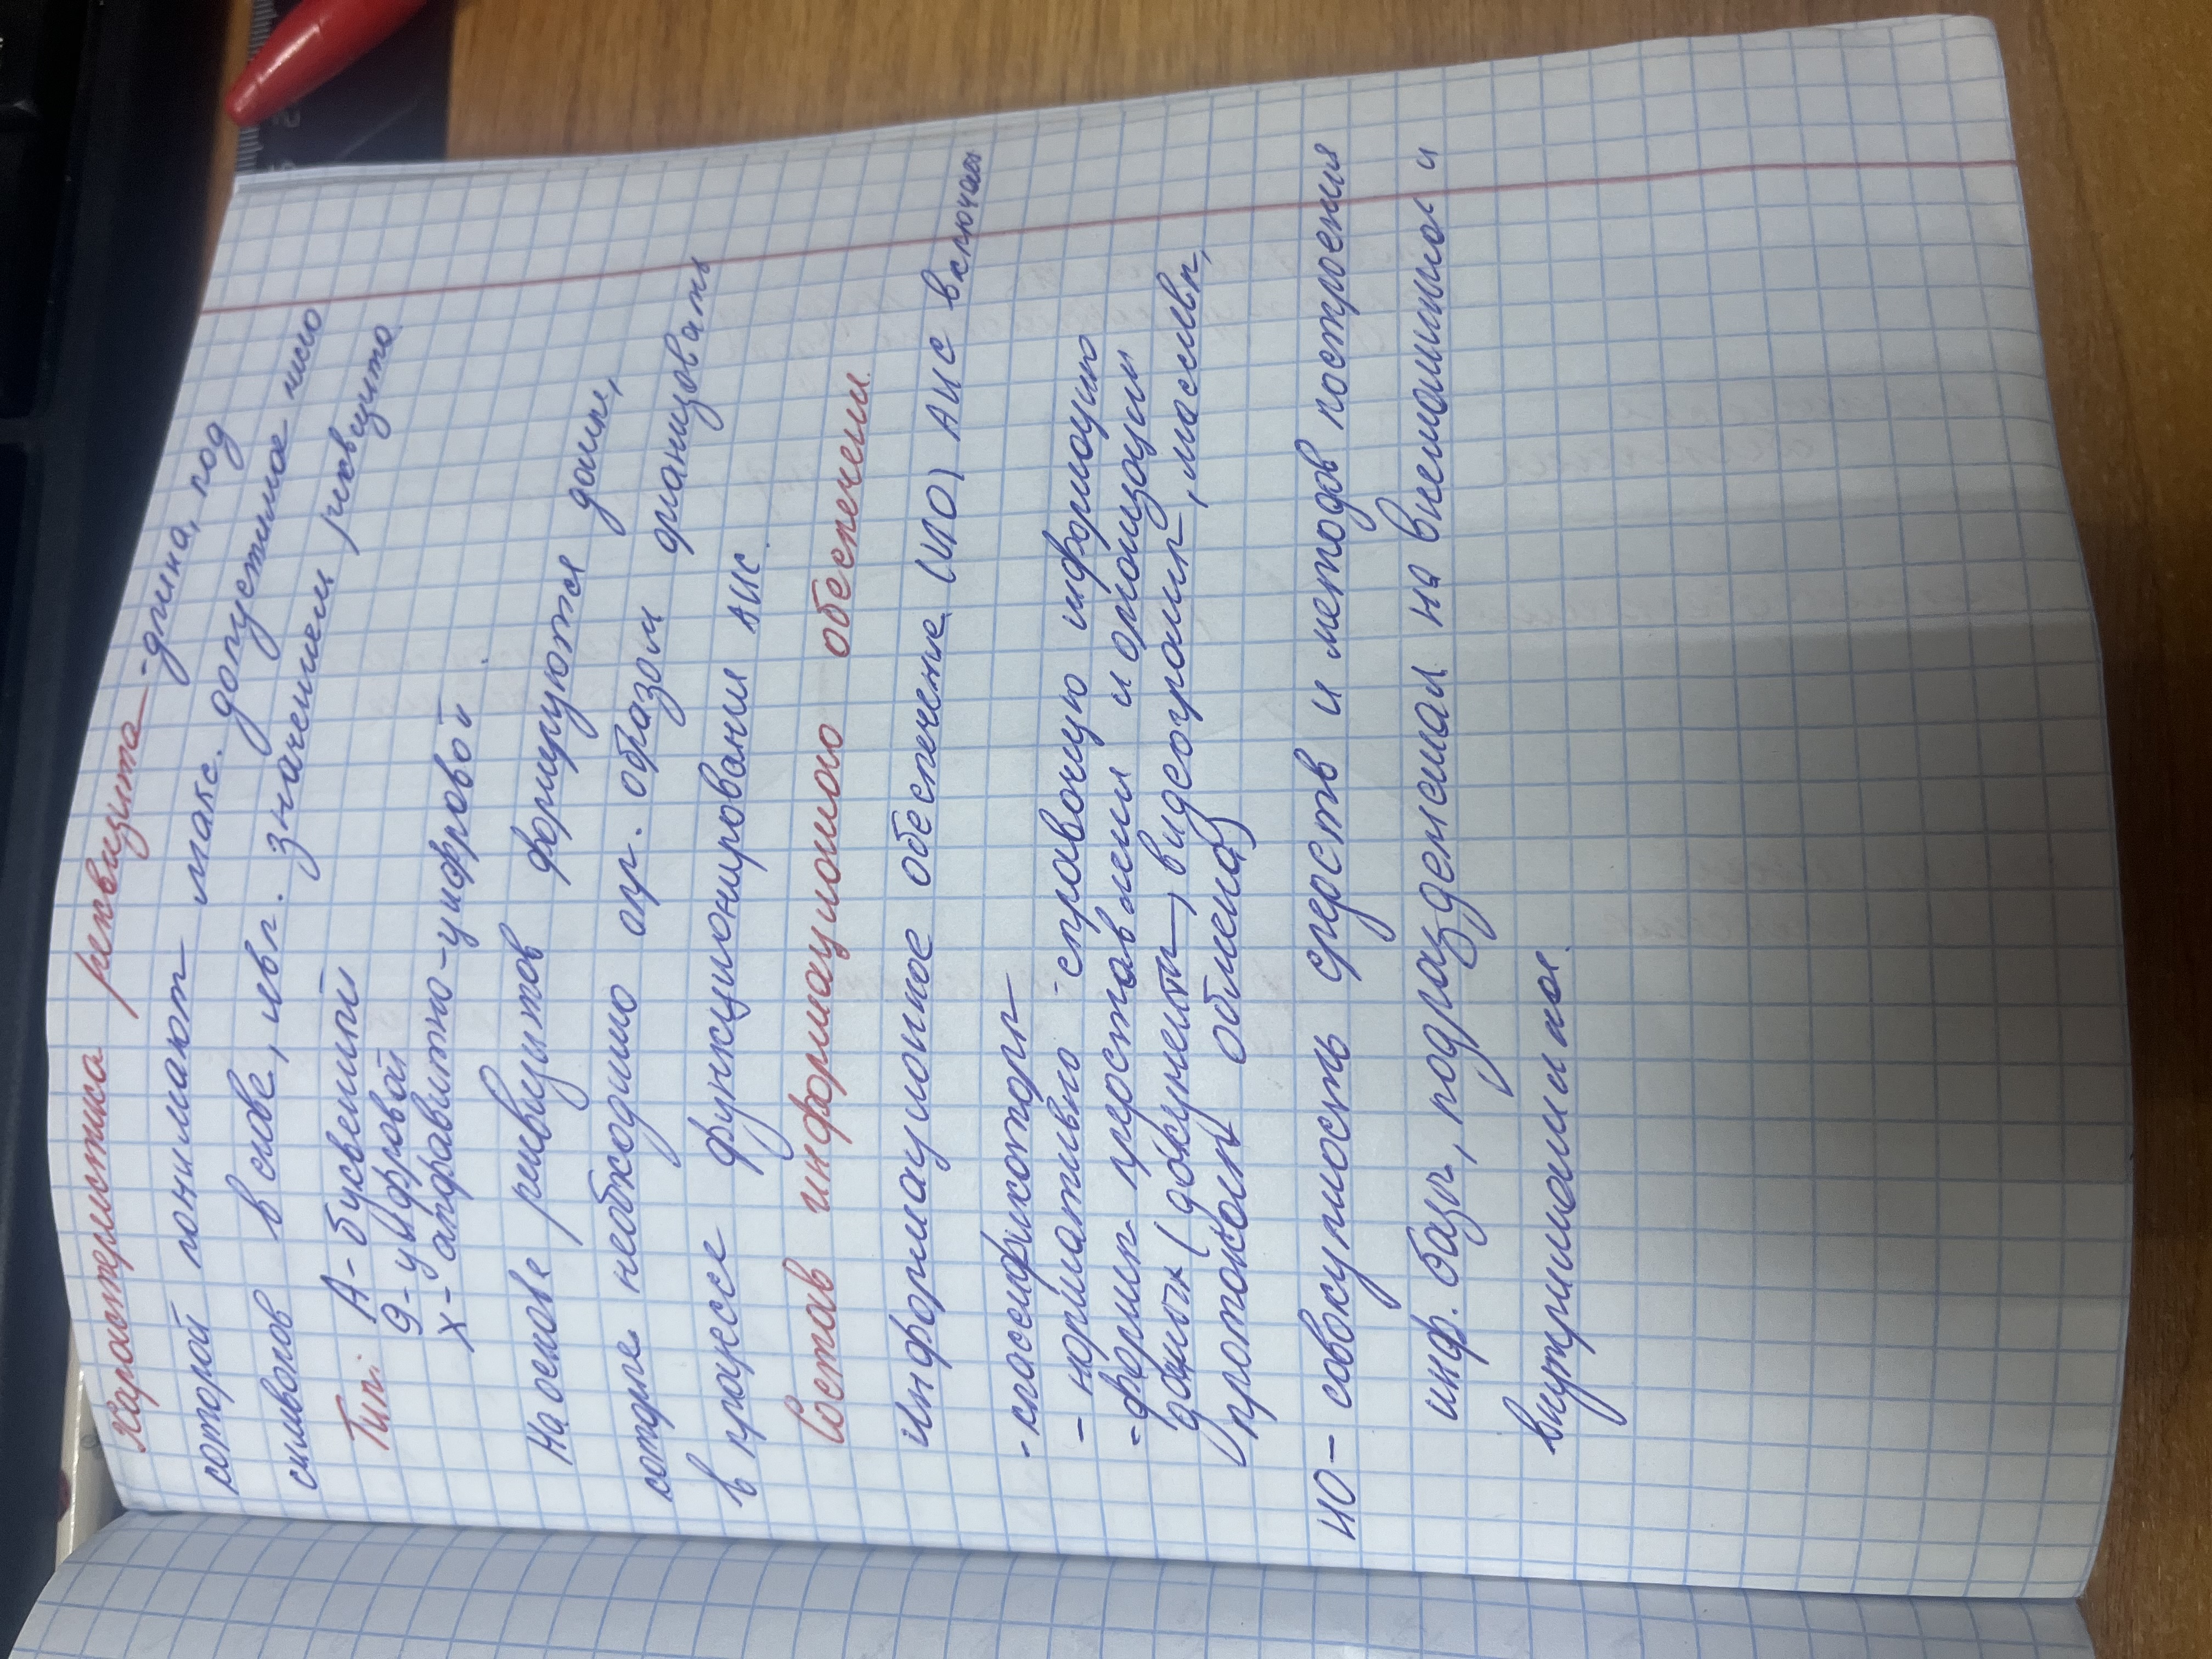 Характеристика реквизита - длина, под
которой понимают макс. допустимое число
символов в слове, явл. значением реквизита
Тип: А - буквенный
9 - цифровой
X - алфавитно-цифровой.
На основе реквизитов формируются данные,
которые необходимо опр. образом организовать
в процессе функционирования АИС.
Состав информационного обеспечения.
Информационное обеспечение (ИО) АИС включает
- классификаторы
- нормативно - справочную информацию
- формы представления и организации
данных (документы, видеограммы, массивы,
протоколы обмена)
ИО - совокупность средств и методов построения
инф. базы, подразделяемая на внемашинная и
внутримашинная.